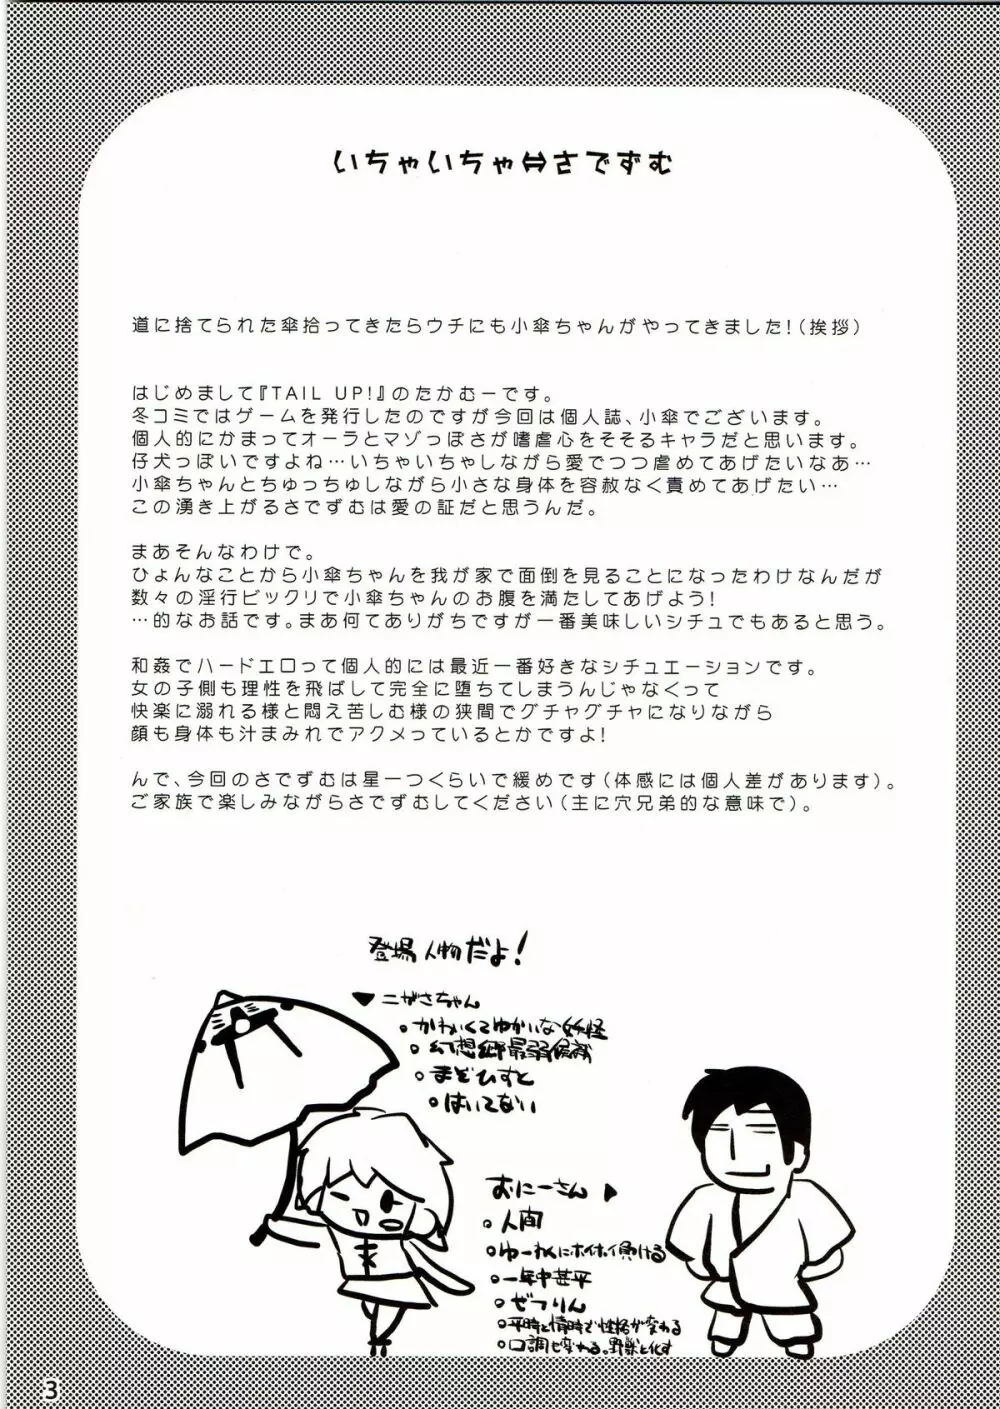 いちゃいちゃ⇔さでずむ
道に捨てられた傘拾ってきたらウチにも小傘ちゃんがやってきました！（挨拶）
はじめまして『TAIL UP!』のたかむーです。
冬コミではゲームを発行したのですが今回は個人誌、小傘でございます。
個人的にかまってオーラとマゾっぽさが嗜虐心をそそるキャラだと思います。
仔犬っぽいですよね…いちゃいちゃしながら愛でつつ虐めてあげたいなあ…
小傘ちゃんとちゅっちゅしながら小さな身体を容赦なく責めてあげたい…
この湧き上がるさでずむは愛の証だと思うんだ。
まあそんなわけで。
ひょんなことから小傘ちゃんを我が家で面倒を見ることになったわけなんだが
数々の淫行ビックリで小傘ちゃんのお腹を満たしてあげよう！
…的なお話です。まあ何てありがちですが一番美味しいシチュでもあると思う。
和姦でハードエロって個人的には最近一番好きなシチュエーションです。
女の子側も理性を飛ばして完全に堕ちてしまうんじゃなくって
快楽に溺れる様と悶え苦しむ様の狭間でグチャグチャになりながら
顔も身体も汁まみれでアクメっているとかですよ！
んで、今回のさでずむは星一つくらいで緩めです（体感には個人差があります）。
ご家族で楽しみながらさでずむしてください（主に穴兄弟的な意味で）。
登場人物だよ！
こがさちゃん
かわいくてゆかいな妖怪
幻想郷最弱候補
まぞひすと
はいてない
おにーさん
人間
ゆーわくにホイホイ負ける
一年中甚平
ぜつりん
平時と情時で性格が変わる
口調も変わる。野獣と化す
3